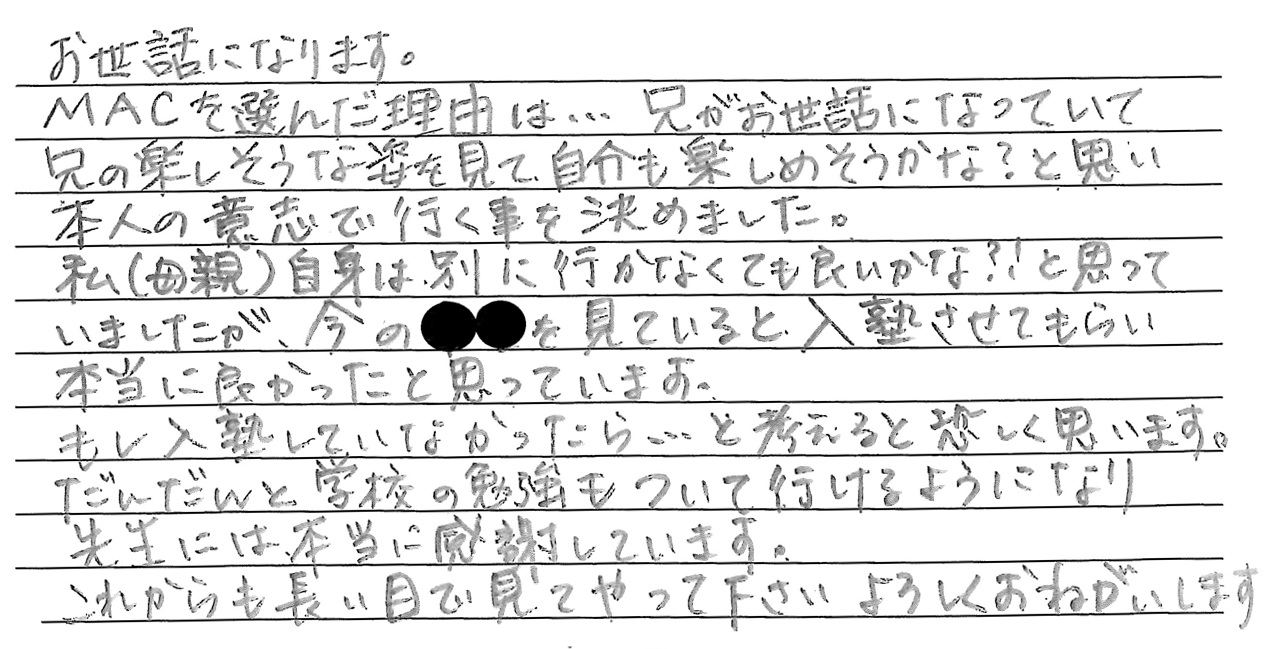 お世話になります。
MACを選んだ理由は… 兄がお世話になっていて
兄の楽しそうな姿を見て、自分も楽しめそうかな?と思い
本人の意志で行く事を決めました。
私(母親)自身は、別に行かなくても良いかな?!と思って
いましたが、今の●●を見ていると、入塾させてもらい
本当に良かったと思っています。
もし入塾していなかったら…と考えると恐しく思います。
だんだんと学校の勉強もついて行けるようになり
先生には本当に感謝しています。
これからも長い目で見てやって下さい よろしくおねがいします